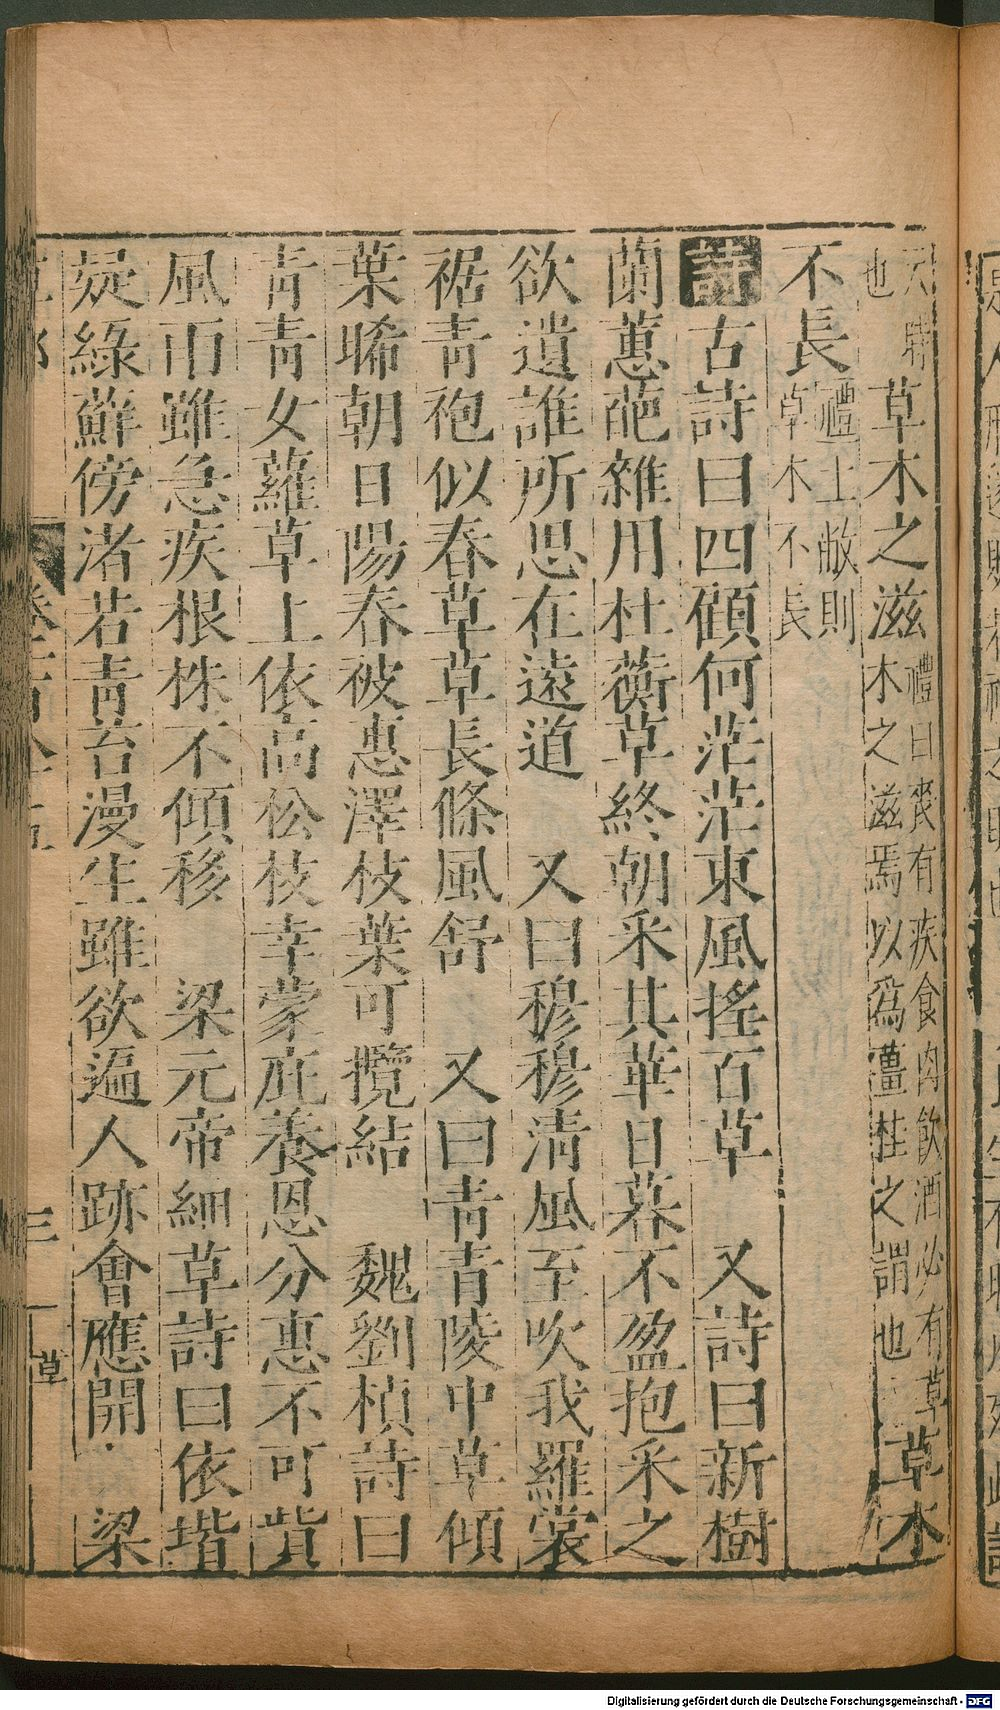 也
草木之滋 禮曰喪有疾食肉飲酒必有草木之滋焉以為薑桂之謂也 草木
不長 禮土敝則草木不長
詩 古詩曰四顧何茫茫東風搖百草 又詩曰新樹
蘭蕙葩雜用杜蘅草終朝采其華日暮不盈抱采之
欲遺誰所思在遠道 又曰穆穆清風至吹我羅裳
裾青袍似春草草長條風舒 又曰青青陵中草傾
葉晞朝日陽春被惠澤枝葉可攬結 魏劉楨詩曰
青青女蘿草上依高松枝幸蒙庇養恩分惠不可貲
風雨雖急疾根株不傾移 梁元帝細草詩曰依堦
疑綠蘚傍渚若青苔漫生雖欲遍人跡會應開 梁
三 草
Digitalisierung gefördert durch die Deutsche Forschungsgemeinschaft - DFG